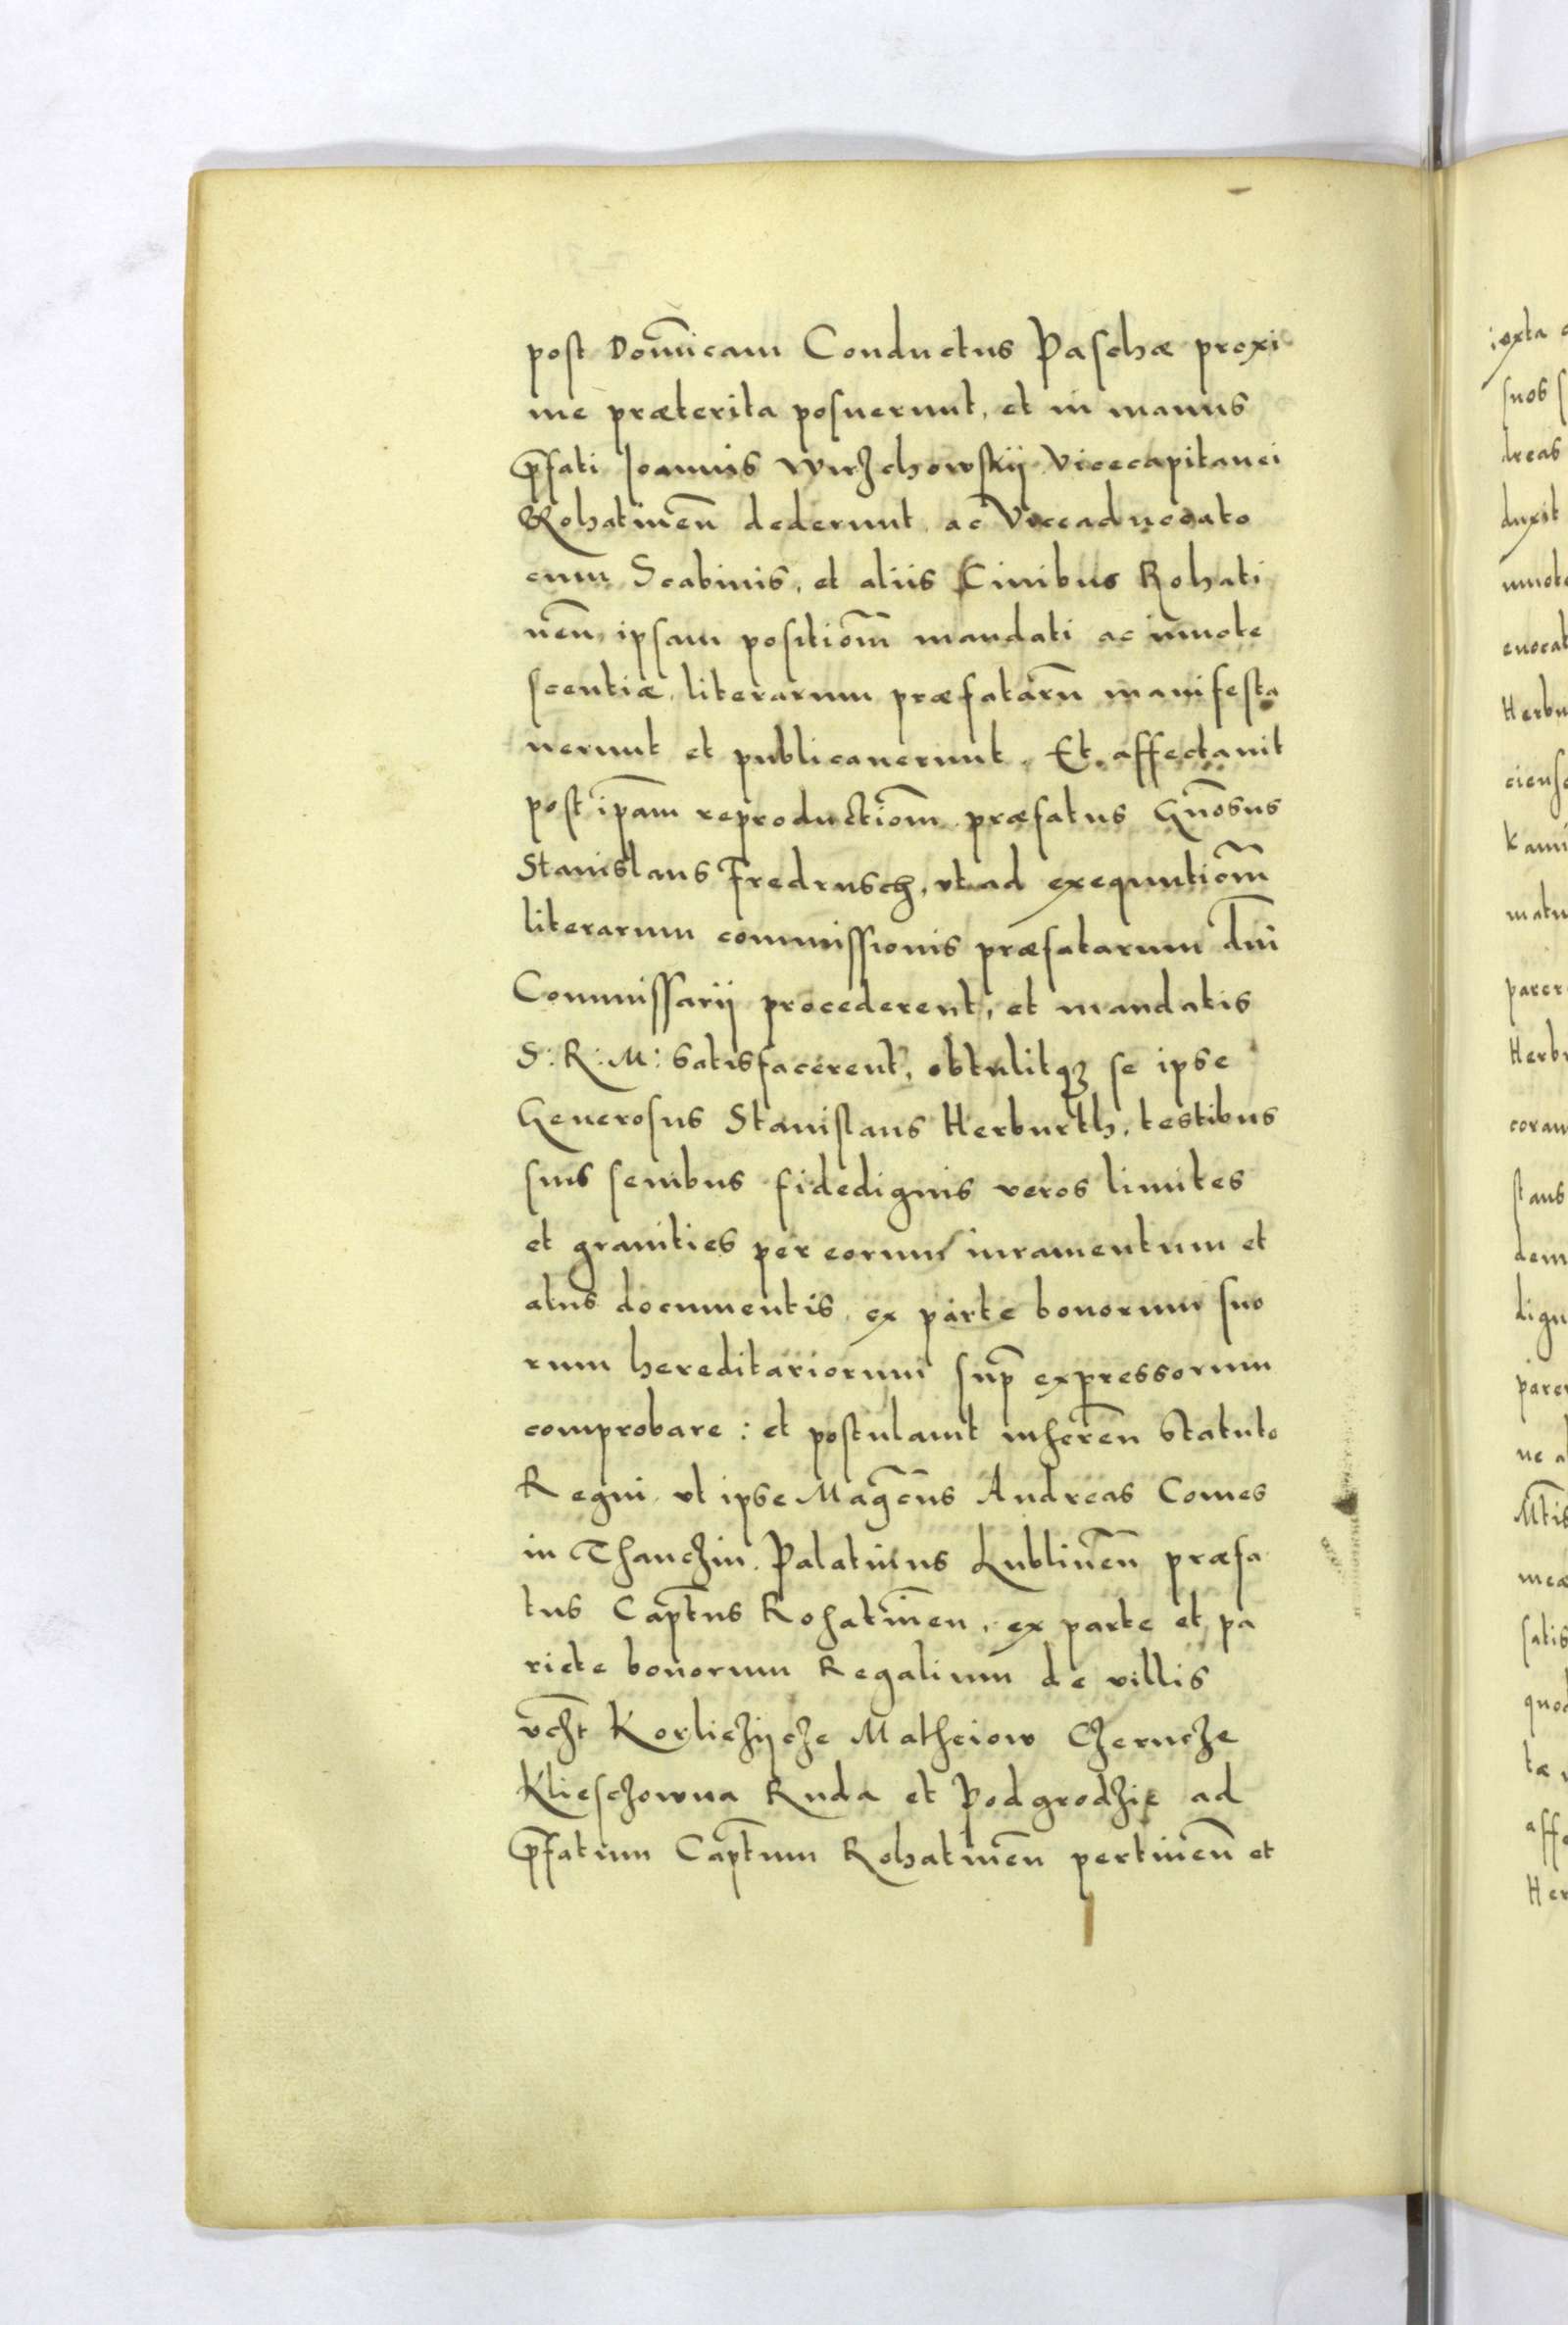 post Dom̄icam Conductus Paschæ proxi
me præterita posuerunt, et in manus
p̄fati Joannis Wirzchowskÿ Vicecapitanei
Rohatineñ dederunt, ac Viceaduocato
cum Scabinis, et aliis Ciuibus Rohati
neñ, ipsam positiom̄ mandati ac innote
scentiæ, literarum præfatarū manifesta
uerunt et publicauerunt. Et affectauit
post ip̄am reproductiom̄ præfatus Gn̄osus
Stanislaus Fredrusch, vt ad exequutiom̄
literarum commissionis præfatarum dn̄i
Commissarij procederent, et mandatis
S: R: M: satisfacerent, obtulitqꝫ se ipse
Generosus Stanislaus Herburth, testibus
suis senibus fidedignis veros limites
et granities per eorum iuramentum et
alius documentis, ex parte bonorum suo
rum hereditariorum sup̄ expressorum
comprobare: et postulauit inhereñ Statuto
Regni, vt ipse Mag̅cus Andreas Comes
in Thanczin, Palatinus Lublineñ præfa
tus Capt̄us Rohatin̄en, ex parte et pa
riete bonorum Regalium de villis
vcz̄t Korliczÿcze Matheiow Czerncze
Klieszczowna Ruda et Podgrodzie ad
p̄fatum Capt̄um Rohatineñ pertineñ et
iuxta
suos
dreas
duxit
innote
euocat
Herbu
ciens
Kami
matu
parer
Herbu
coram
slaus
dem
dign
parer
ne a
Mt̄is
meæ
satis
quod
tæ
affe
Her